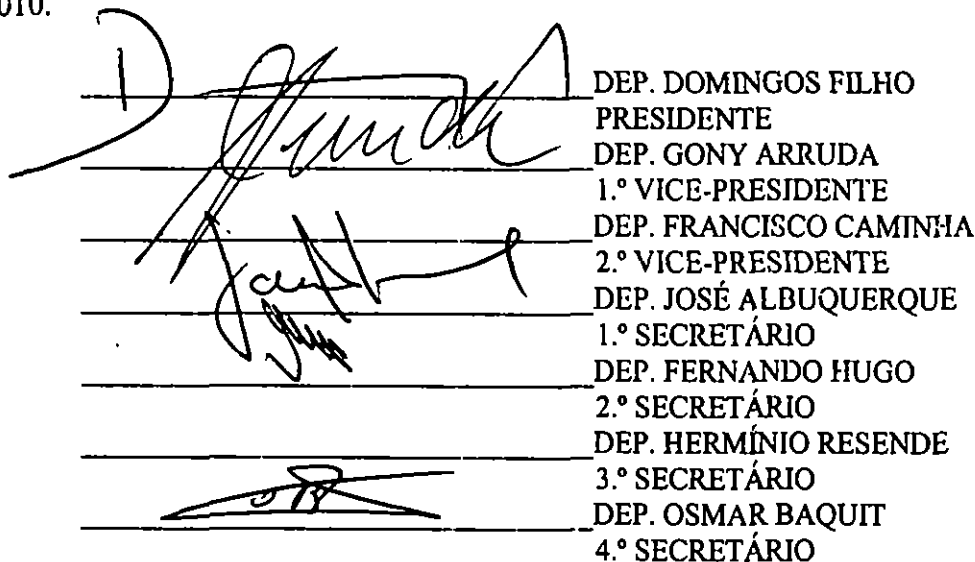 010.
DEP. DOMINGOS FILHO
PRESIDENTE
DEP. GONY ARRUDA
1.º VICE-PRESIDENTE
DEP. FRANCISCO CAMINHA
2.º VICE-PRESIDENTE
DEP. JOSÉ ALBUQUERQUE
1.º SECRETÁRIO
DEP. FERNANDO HUGO
2.º SECRETÁRIO
DEP. HERMÍNIO RESENDE
3.º SECRETÁRIO
DEP. OSMAR BAQUIT
4.º SECRETÁRIO